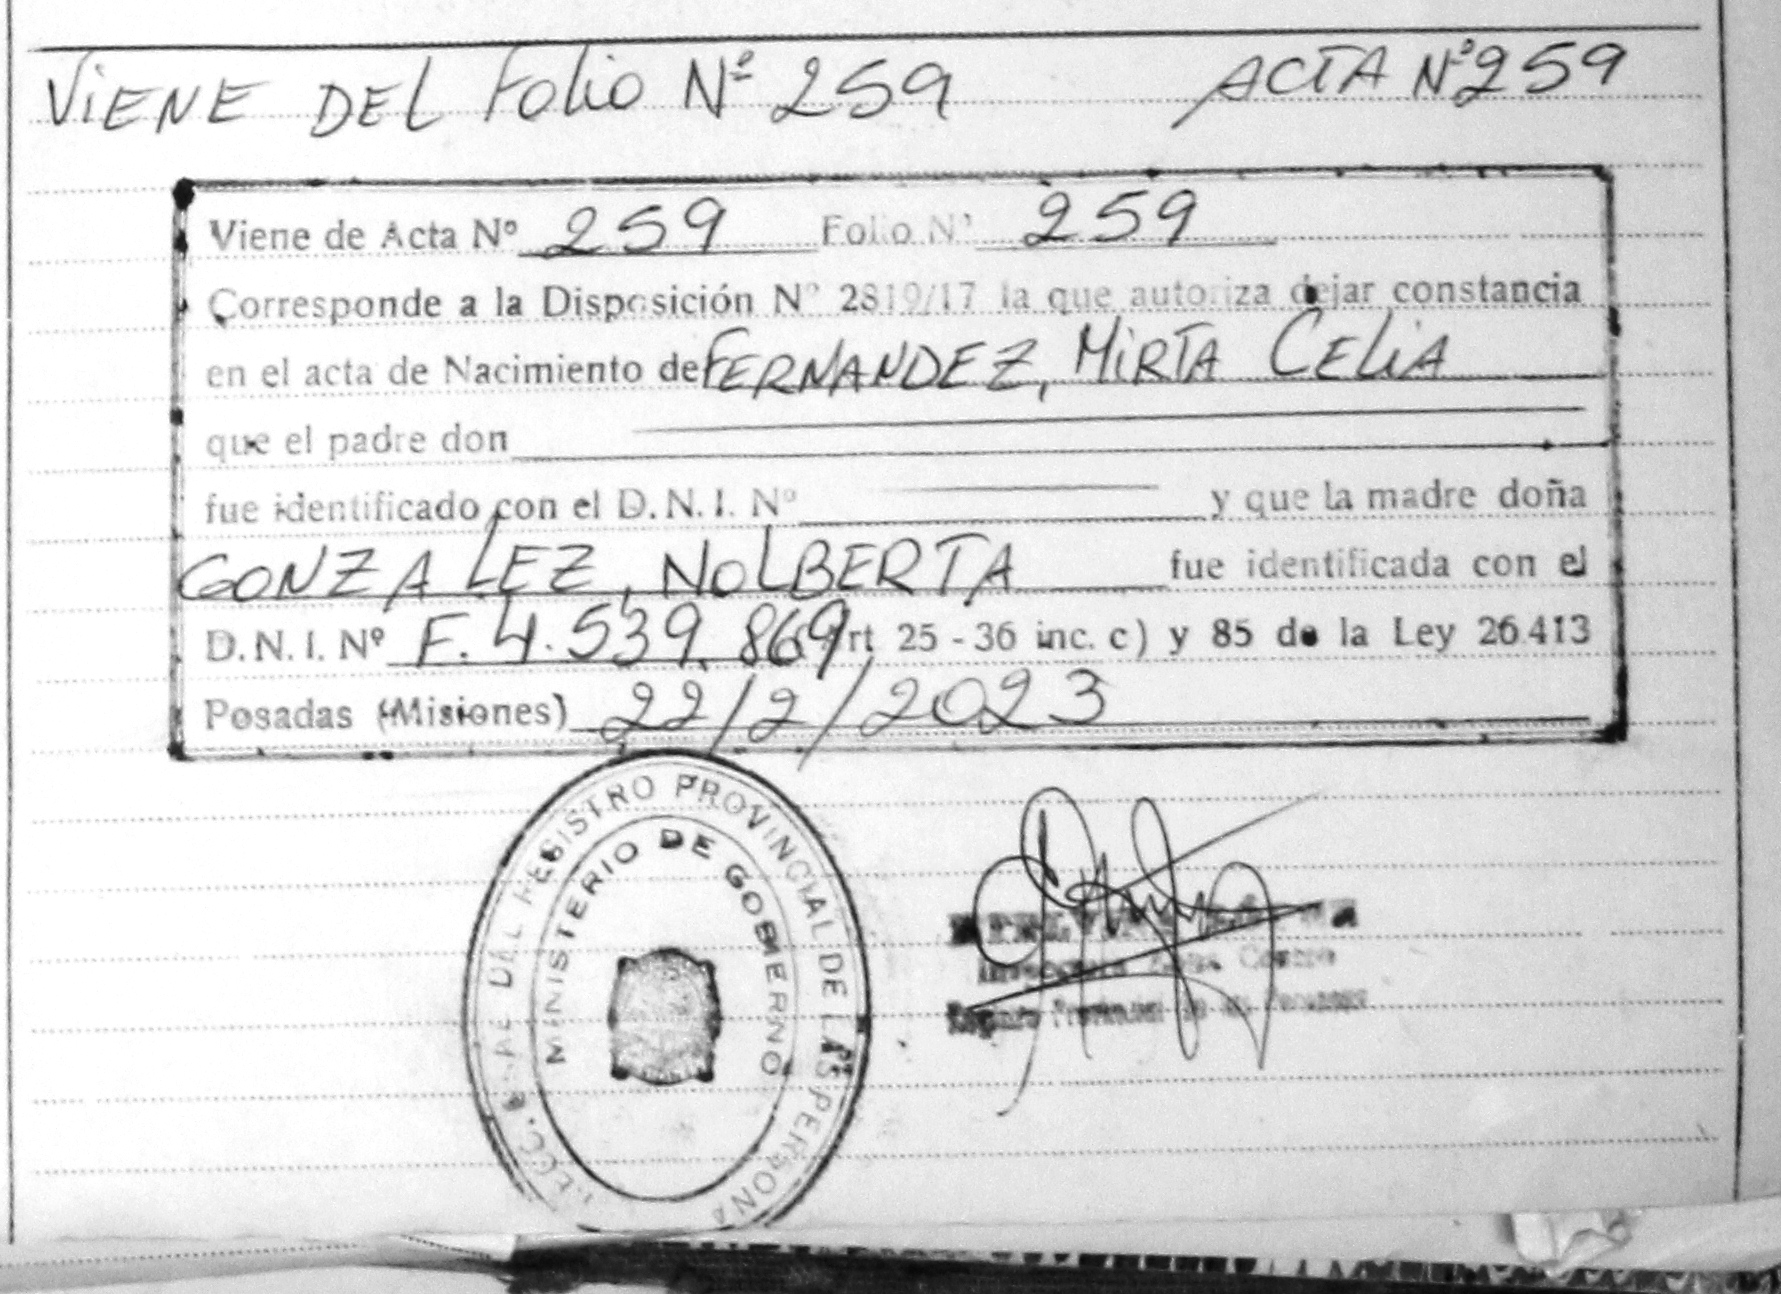 VIENE DEL FOLIO Nº 259 ACTA Nº 259
Viene de Acta Nº 259 Folio Nº 259
Corresponde a la Disposición Nº 2819/17 la que autoriza dejar constancia
en el acta de Nacimiento de FERNANDEZ, MIRTA CELIA
que el padre don
fue identificado con el D.N.I. Nº y que la madre doña
GONZALEZ, NOLBERTA fue identificada con el
D.N.I. Nº F. 4.539.869 rt 25 - 36 inc. c) y 85 de la Ley 26.413
Posadas (Misiones) 22/2/2023
REGISTRO PROVINCIAL DE LAS PERSONA
MINISTERIO DE GOBIERNO
Registro Provincial de las Personas